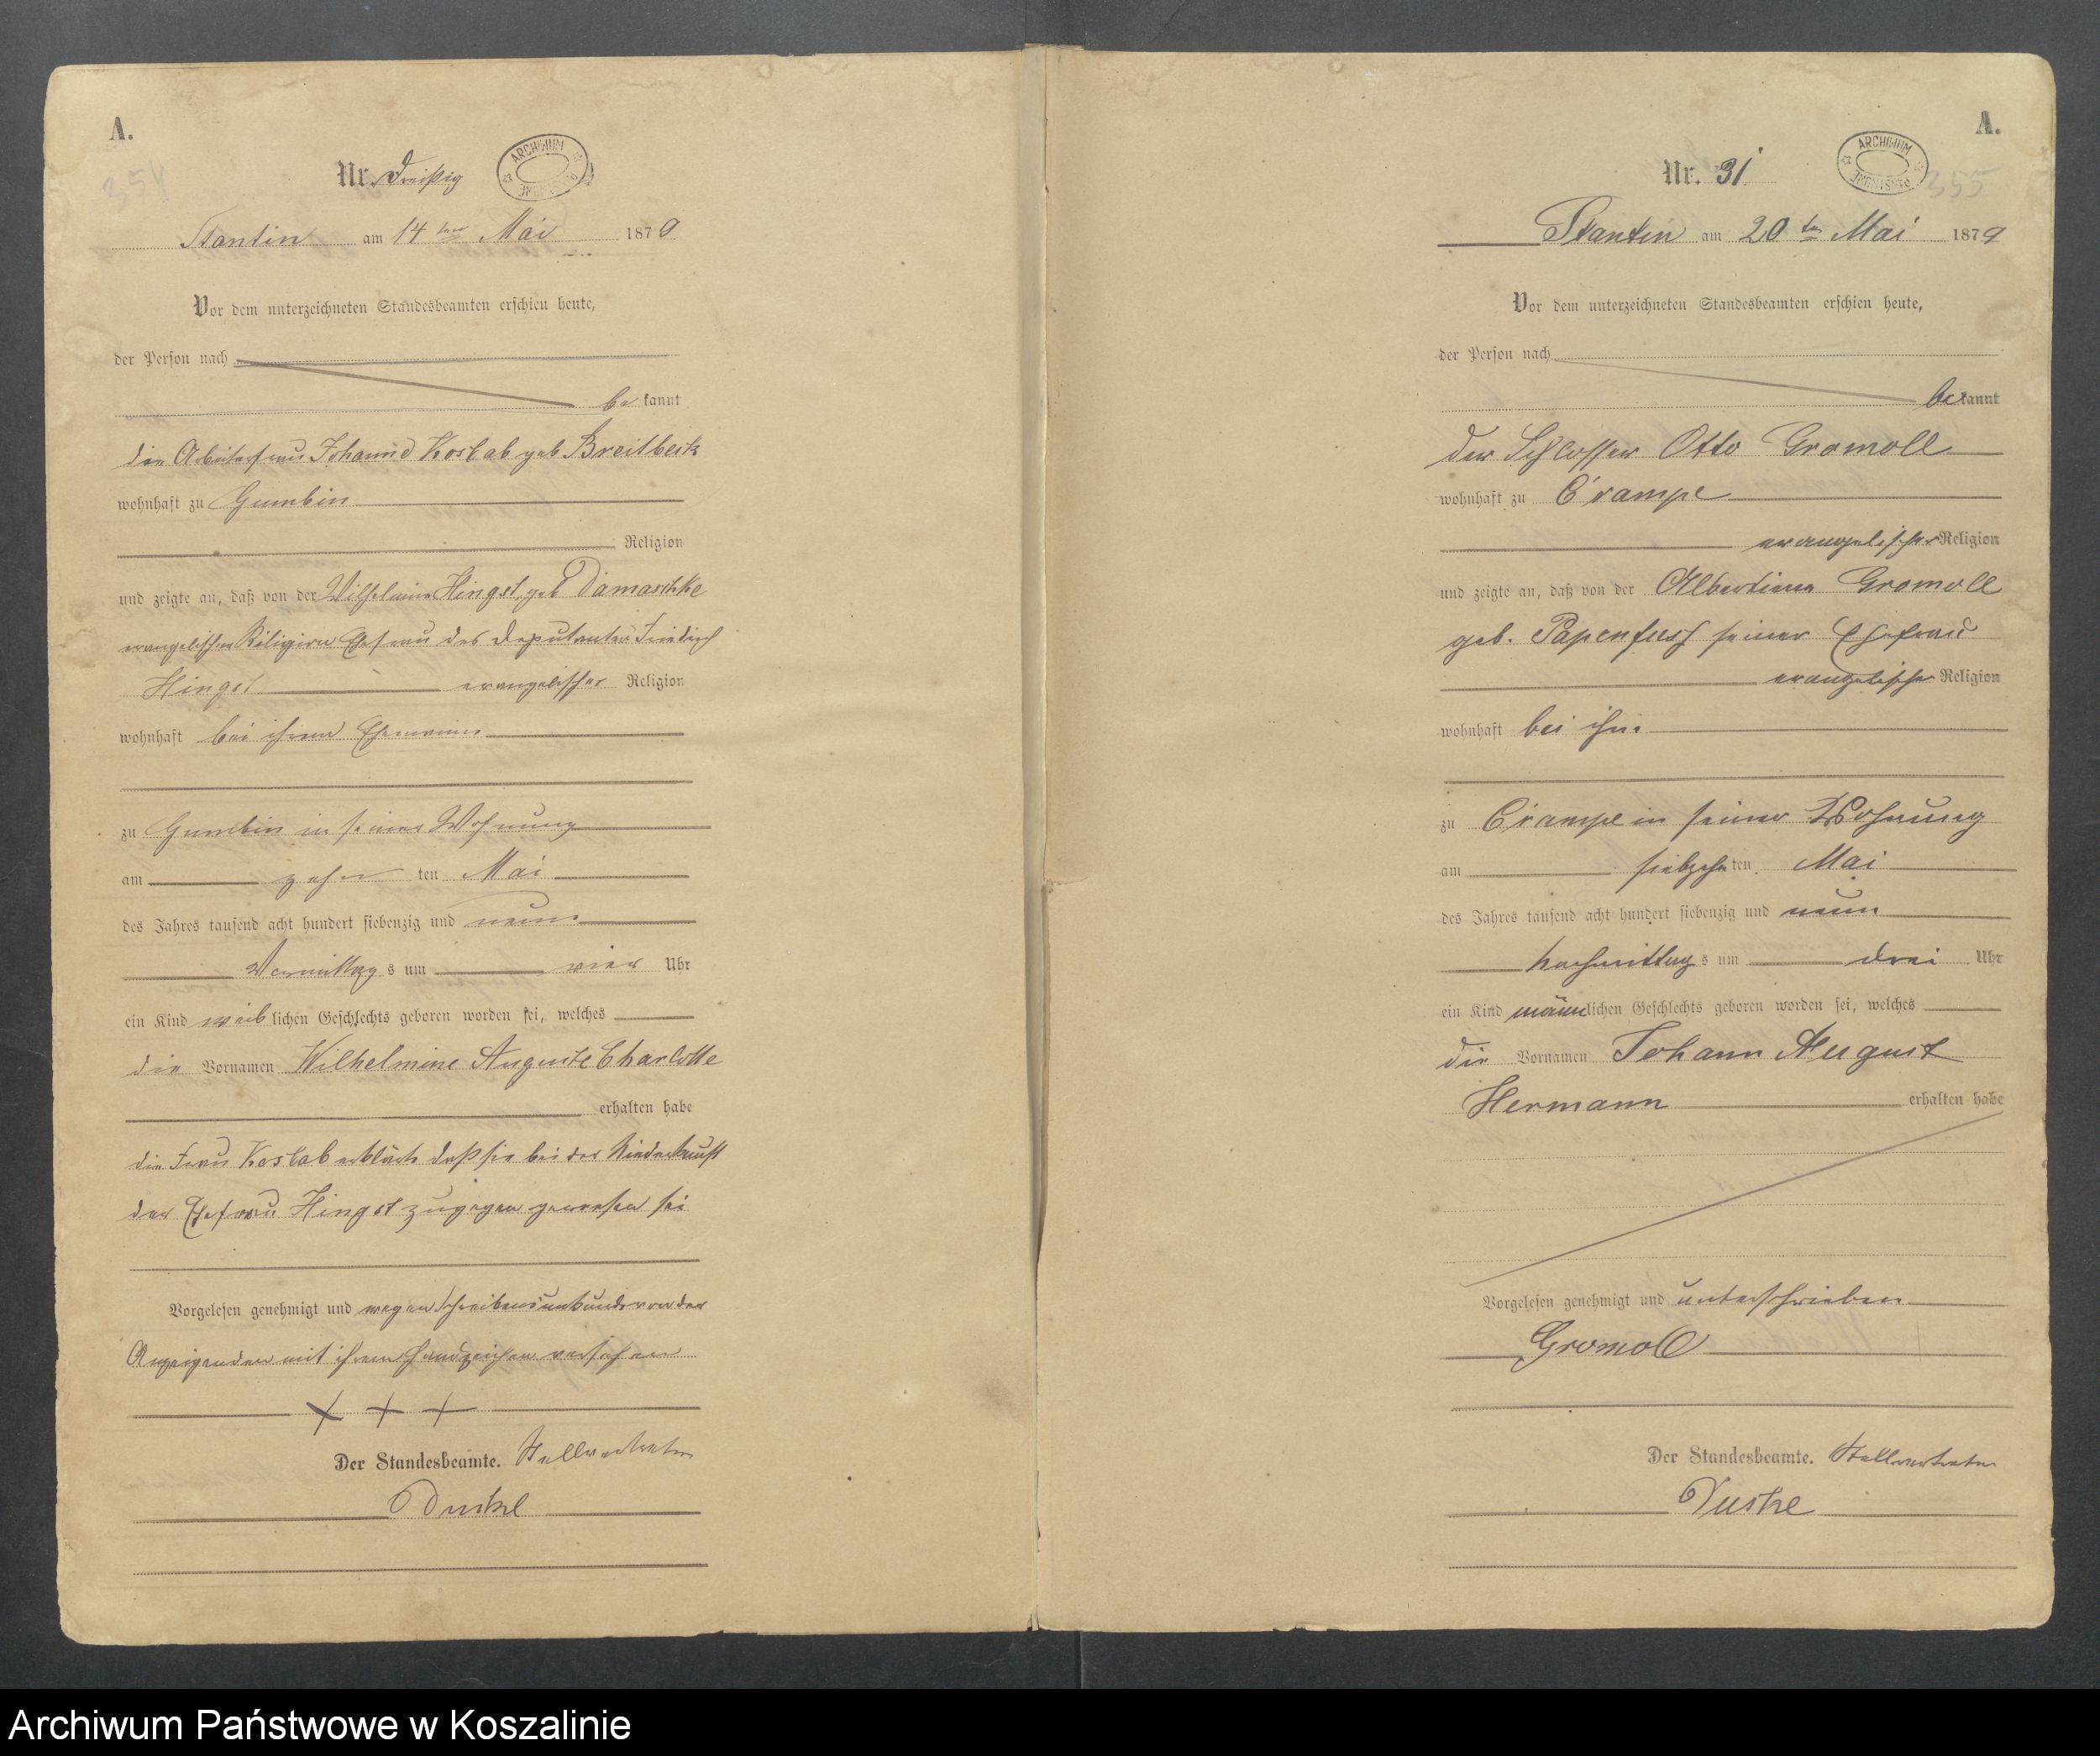 A.
354
Nr. Dreißig
ARCHIWUM PAŃSTWOWE
Stantin am 14ten Mai 1879
Vor dem unterzeichneten Standesbeamten erschien heute,
der Person nach
be kannt
die Arbeiterfrau Johanne Kostab geb Breitbeck
wohnhaft zu Gumbin
Religion
und zeigte an, daß von der Wilhelmine Hingst, geb Damaschke
evangelischer Religion Ehefrau des Deputanten Friedrich
Hingst evangelischer Religion
wohnhaft bei ihrem Ehemann
zu Gumbin in seiner Wohnung
am zehn ten Mai
des Jahres tausend acht hundert siebenzig und neun
Vormittag s um vier Uhr
ein Kind weib lichen Geschlechts geboren worden sei, welches
die Vornamen Wilhelmine Auguste Charlotte
erhalten habe
die Frau Kostab erklärte daß sie bei der Niederkunft
der Ehefrau Hingst zugegen gewesen sei
Vorgelesen genehmigt und wegen Schreibensunkunde von der
Anzeigenden mit ihrem Handzeichen versehen
+ + +
Der Standesbeamte. Stellvertreter
Duske
A.
355
Nr. 31
ARCHIWUM PAŃSTWOWE
Stantin am 20ten Mai 1879
Vor dem unterzeichneten Standesbeamten erschien heute,
der Person nach
bekannt
der Schlosser Otto Gromoll
wohnhaft zu Crampe
evangelischer Religion
und zeigte an, daß von der Albertine Gromoll
geb. Papenfuss seiner Ehefrau
evangelischer Religion
wohnhaft bei ihm
zu Crampe in seiner Wohnung
am siebzehn ten Mai
des Jahres tausend acht hundert siebenzig und neun
Nachmittag s um drei Uhr
ein Kind männlichen Geschlechts geboren worden sei, welches
die Vornamen Johann August
Hermann erhalten habe
Vorgelesen genehmigt und unterschrieben
Gromoll
Der Standesbeamte. Stellvertreter
Duske
Archiwum Państwowe w Koszalinie